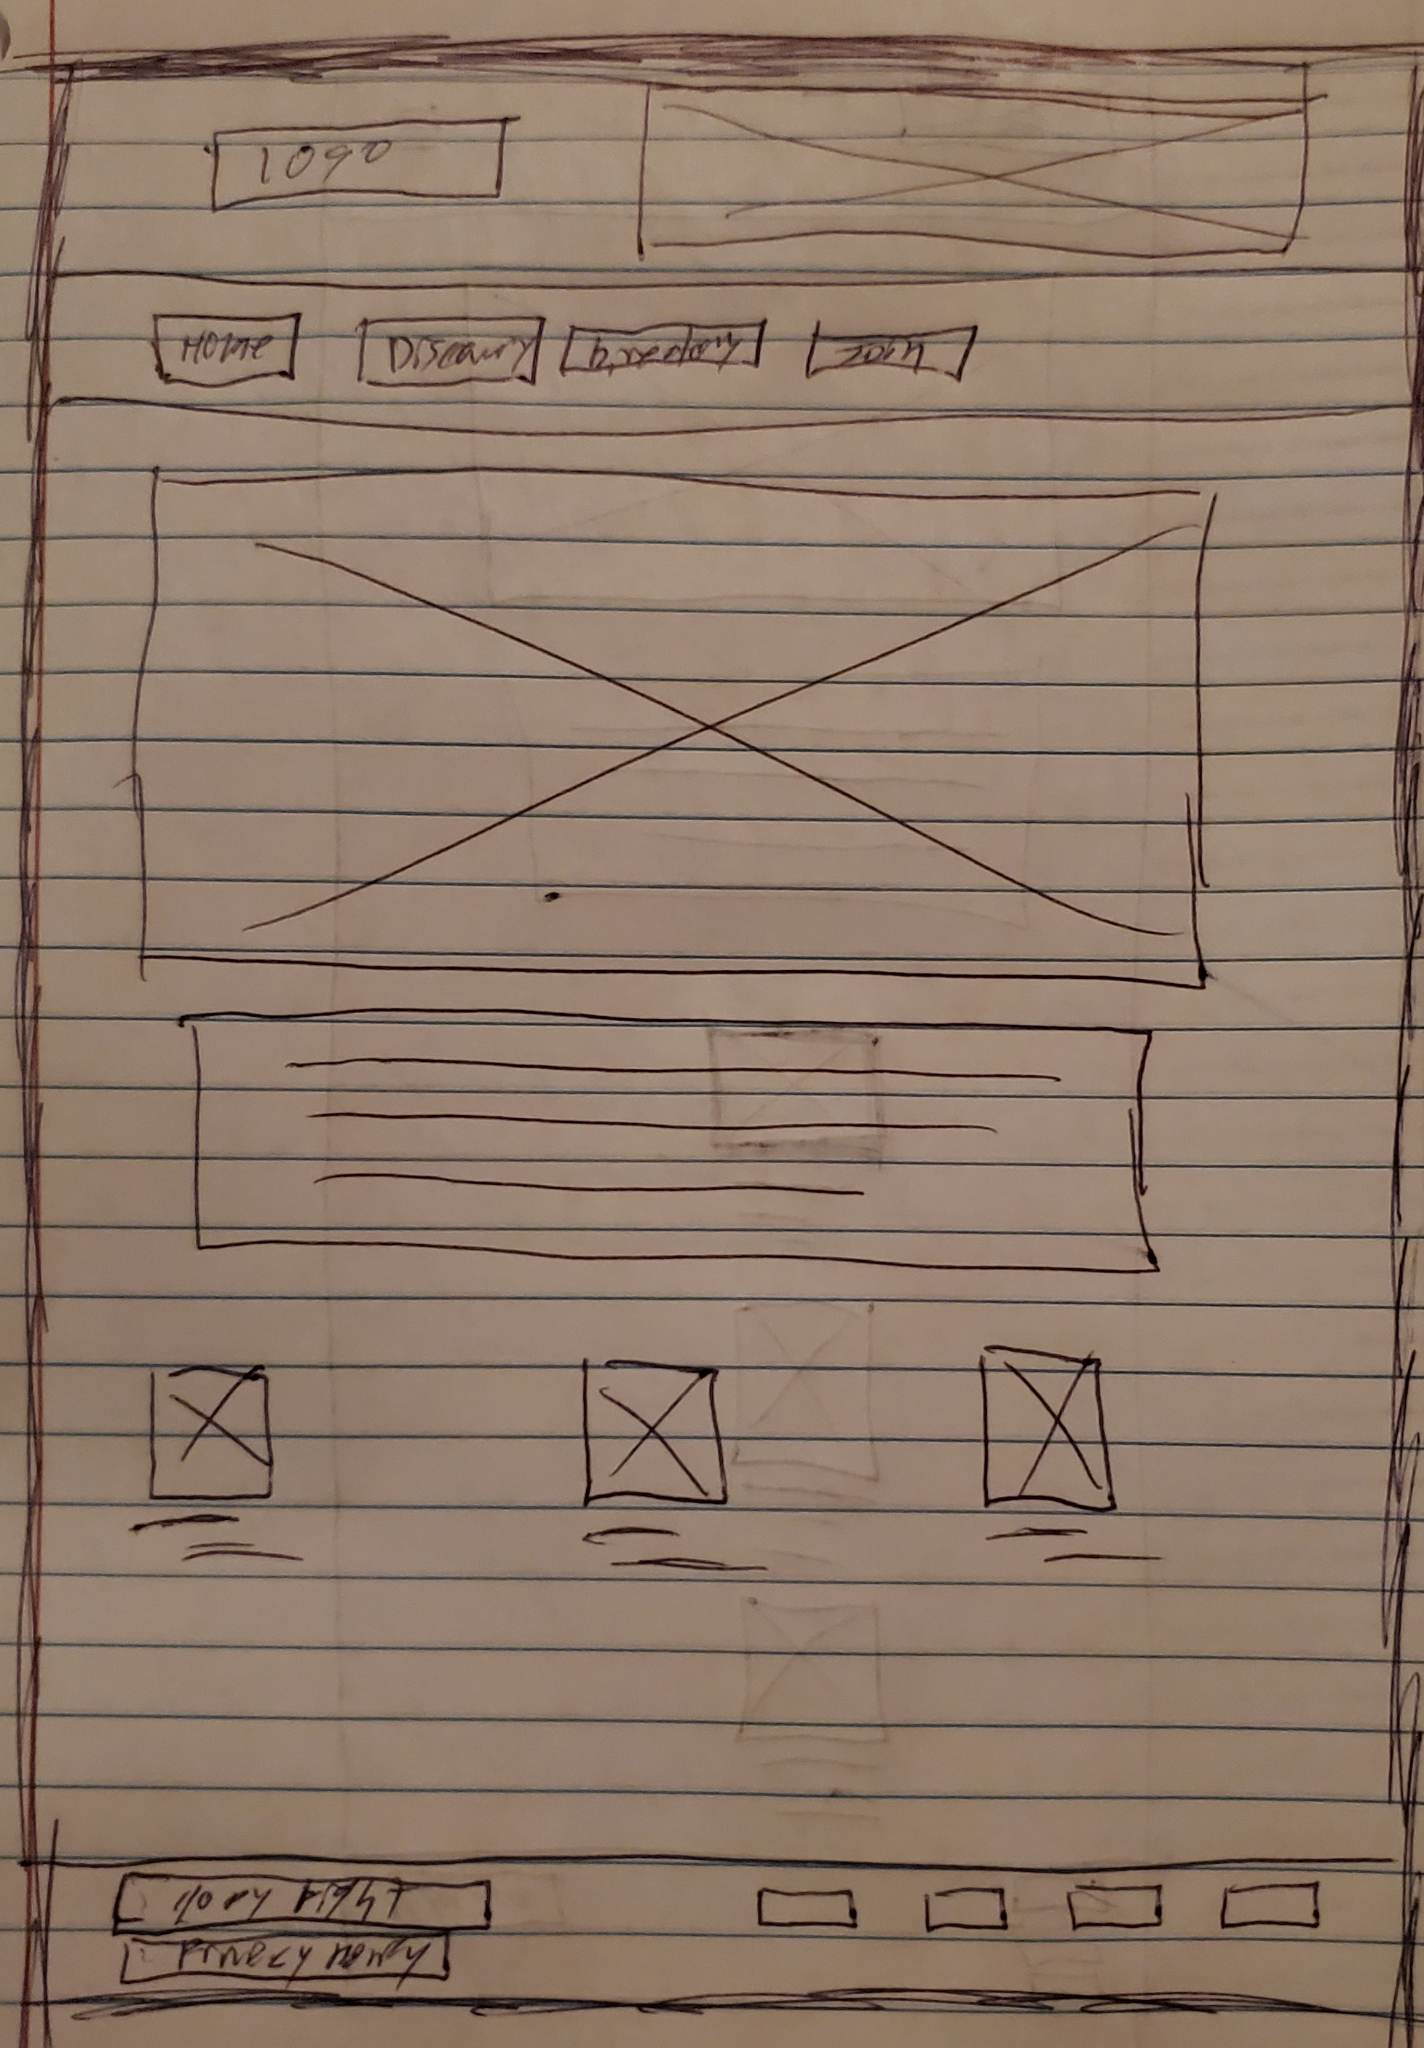 logo
Home Discovry Directory Join
Copy Right
Privacy